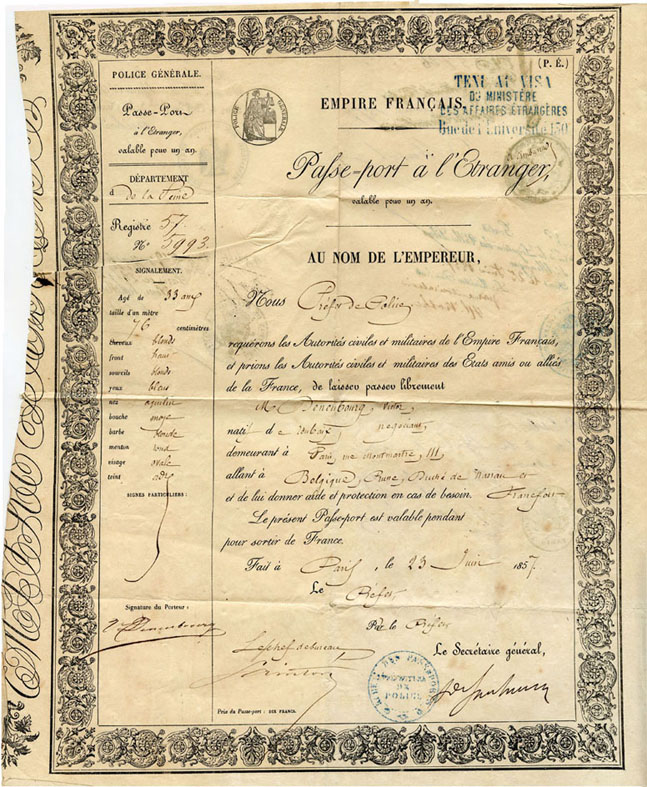 (P. É.)
POLICE GÉNÉRALE.
Passe-Port
à l'Étranger,
valable pour un an.
DÉPARTEMENT
d de la Seine
Registre 57
N° 5993.
SIGNALEMENT.
Agé de 33 ans
taille d'un mètre
76 centimètres
cheveux blonds
front haut
sourcils blonds
yeux bleus
nez aquilin
bouche moye
barbe blonde
menton rond
visage ovale
teint
SIGNES PARTICULIERS :
Signature du Porteur :
POLICE GÉNÉRALE
EMPIRE FRANÇAIS.
VISA
DU MINISTÈRE
DES AFFAIRES ÉTRANGÈRES
Rue de l'Université 130
Passe-port à l'Étranger,
valable pour un an.
AU NOM DE L'EMPEREUR,
Nous Préfet de Police
requérons les Autorités civiles et militaires de l'Empire Français,
et prions les Autorités civiles et militaires des États amis ou alliés
de la France, de laisser passer librement
M. Victor
natif de Roubaix, négociant,
demeurant à Paris, rue Montmartre, 111
allant à Belgique, Prusse, Duché de Nassau et
et de lui donner aide et protection en cas de besoin. Francfort
Le présent Passe-port est valable pendant
pour sortir de France.
Fait à Paris, le 23 Juin 1857
Le Préfet
Par le Préfet
Le Secrétaire général,
Le chef de bureau
BUREAU DES PASSEPORTS
PRÉFECTURE
DE
POLICE
Prix du Passe-port : DIX FRANCS.